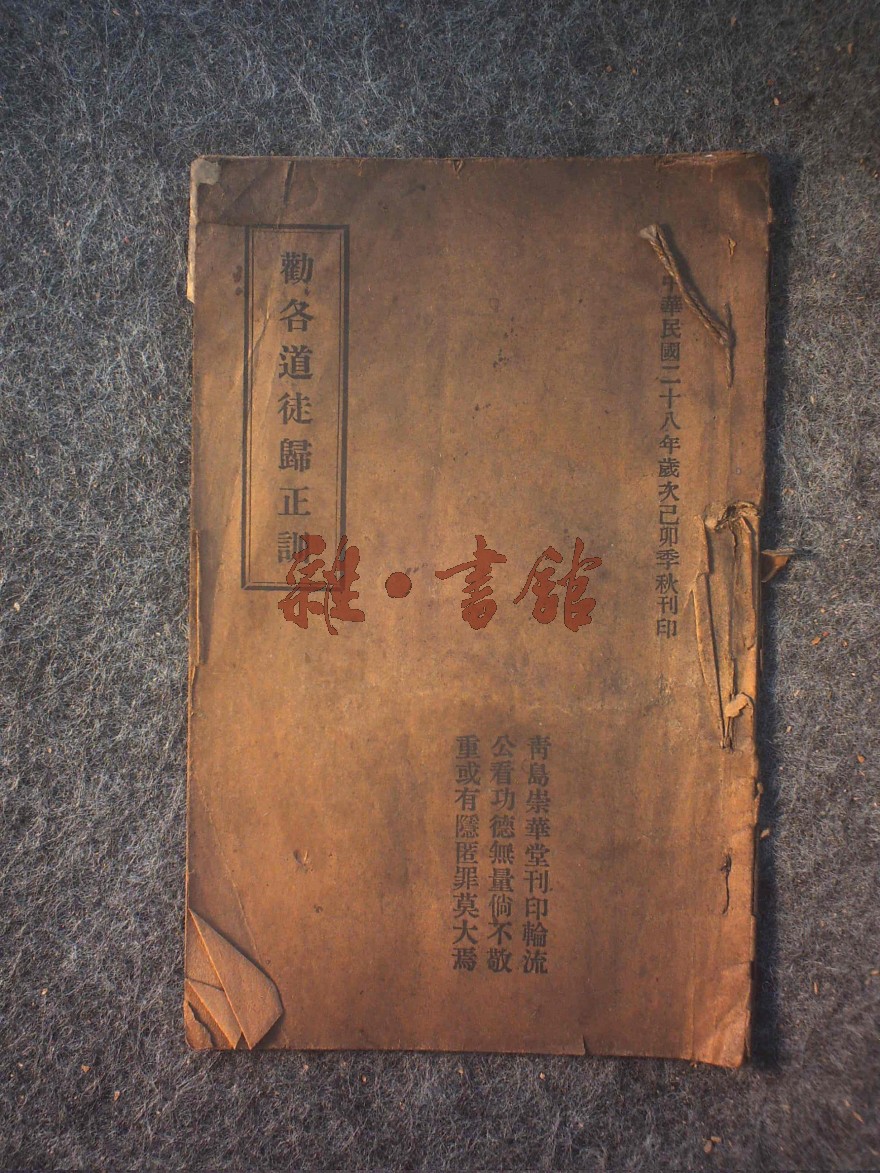 中華民國二十八年歲次己卯季秋刊印
青島崇華堂刊印輪流
公看功德無量倘不敬
重或有隱匿罪莫大焉
勸各道徒歸正訓
雜·書館